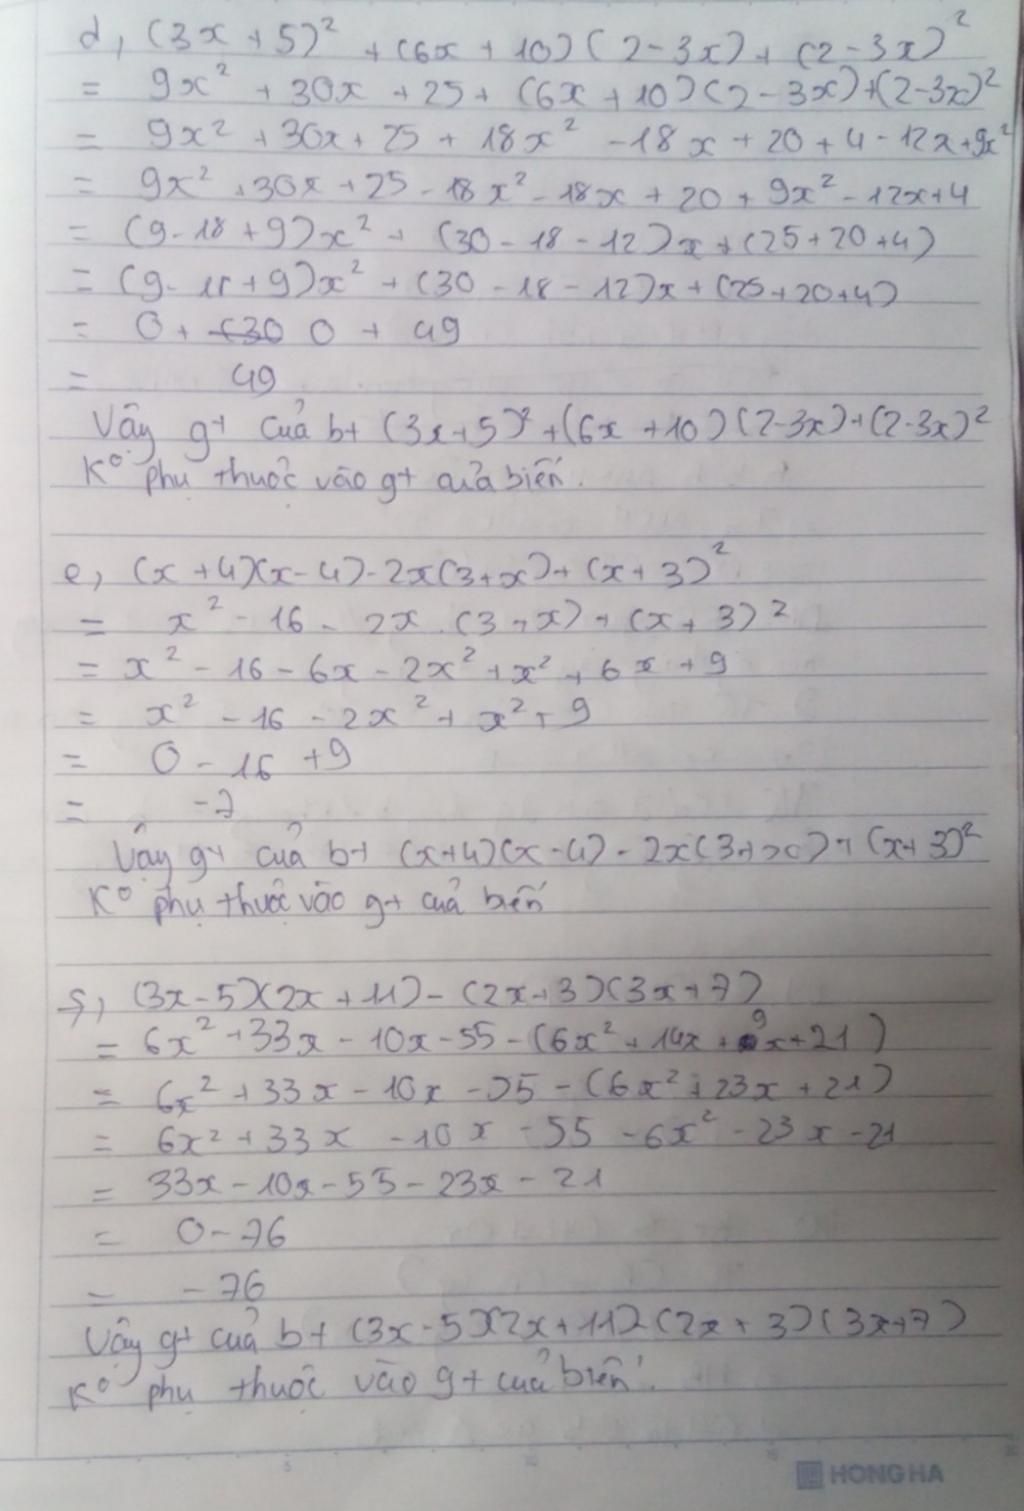 d, (3x + 5)² + (6x + 10)(2-3x) + (2-3x)²
= 9x² + 30x + 25 + (6x + 10)(2-3x)+(2-3x)²
= 9x² + 30x + 25 + 18x² - 18x + 20 + 4 - 12x + 9x²
= 9x² + 30x + 25 - 18x² - 18x + 20 + 9x² - 12x + 4
= (9-18+9)x² + (30-18-12)x + (25+20+4)
= (9-18+9)x² + (30-18-12)x + (25+20+4)
= 0 + 0 + 49
= 49
Vậy gt của bt (3x+5)² + (6x+10)(2-3x)+(2-3x)²
K° phụ thuộc vào gt của biến.
e, (x+4)(x-4)-2x(3+x)+(x+3)²
= x² - 16 - 2x.(3+x)+(x+3)²
= x² - 16 - 6x - 2x² + x² + 6x + 9
= x² - 16 - 2x² + x² + 9
= 0 - 16 + 9
= -7
Vậy gt của bt (x+4)(x-4)-2x(3+x)+(x+3)²
K° phụ thuộc vào gt của biến
f, (3x-5)(2x+11)-(2x+3)(3x+7)
= 6x² + 33x - 10x - 55 - (6x² + 14x + 9x + 21)
= 6x² + 33x - 10x - 55 - (6x² + 23x + 21)
= 6x² + 33x - 10x - 55 - 6x² - 23x - 21
= 33x - 10x - 55 - 23x - 21
= 0 - 76
= -76
Vậy gt của bt (3x-5)(2x+11)-(2x+3)(3x+7)
K° phụ thuộc vào gt của biến.
5 10 15 20
HONG HA